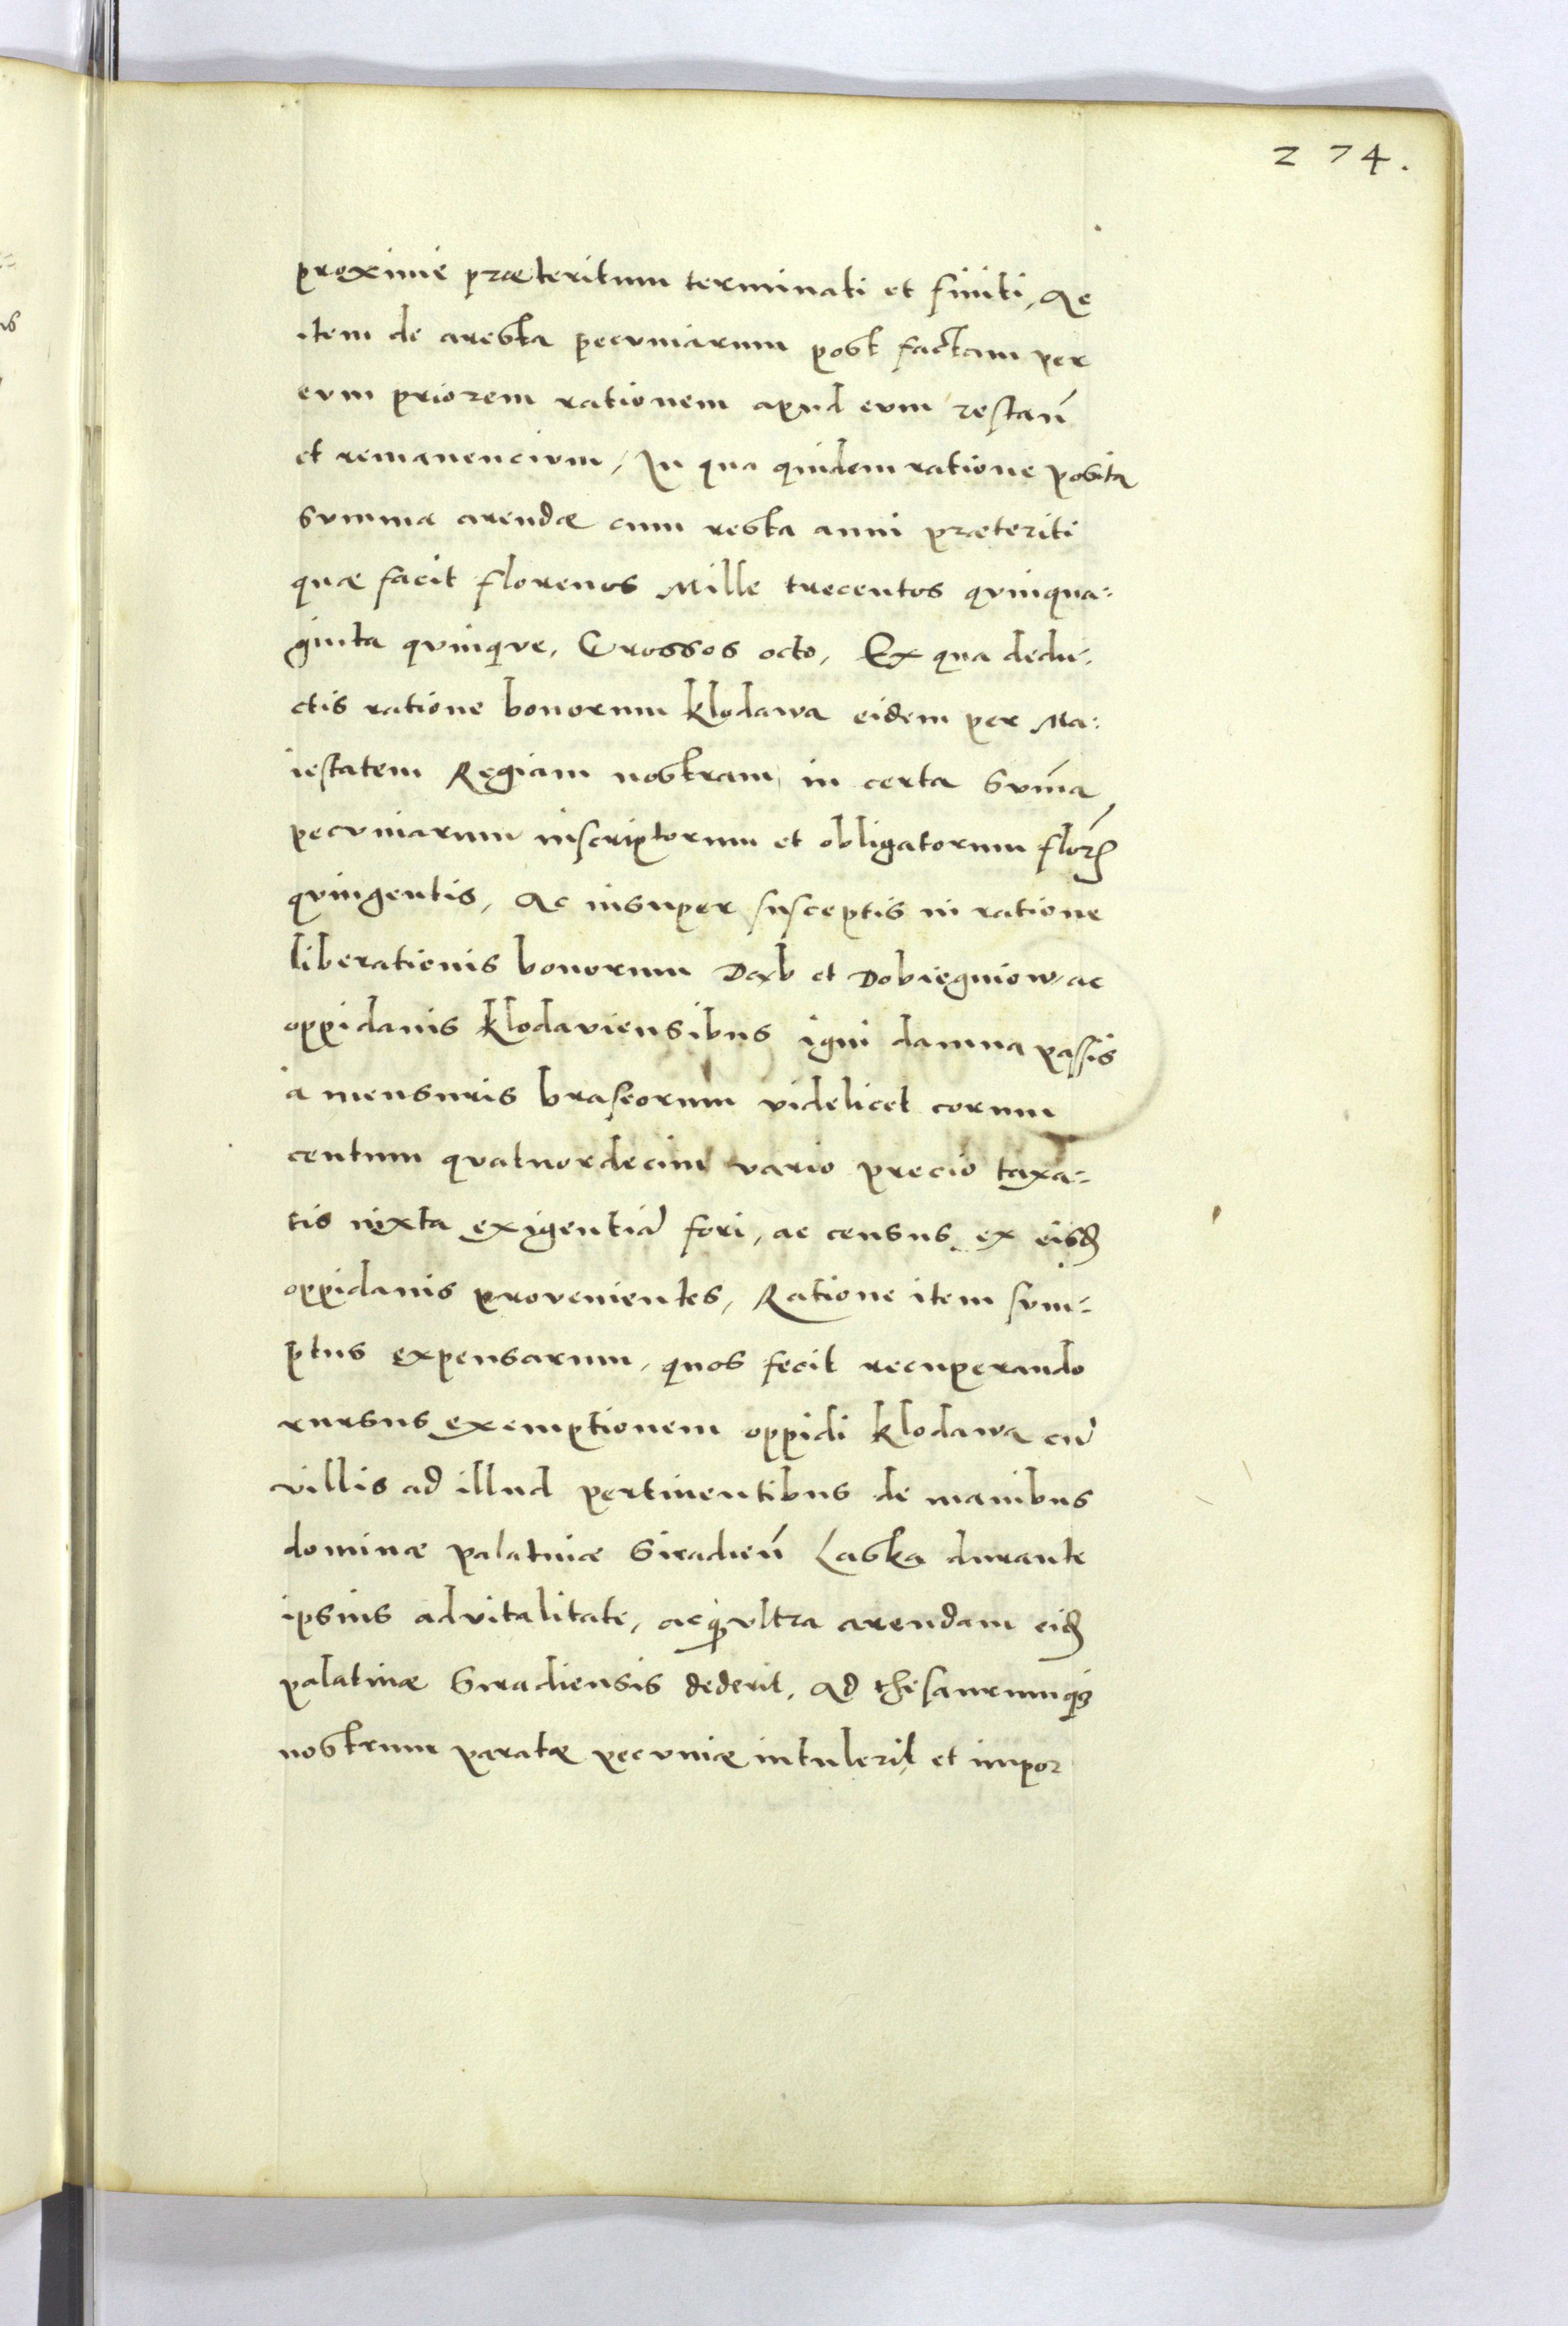 274.
proxime præteritum terminati et finiti, Ac
item de aresta pecuniarum post factam per
eum priorem rationem apud eum restan̄
et remanencium, In qua quidem ratione posita
summa arendæ cum resta anni præteriti
quæ facit florenos Mille trecentos quinqua=
ginta quinque, Grossos octo, Ex qua dedu=
ctis ratione bonorum Klodawa eidem per Ma=
iestatem Regiam nostram, in certa sum̄a
pecuniarum inscriptorum et obligatorum floreñ
quingentis, Ac insuper susceptis in ratione
liberationis bonorum Dąb et Dobiegniow, ac
oppidanis Klodaviensibus igni damna passis
a mensuris braseorum videlicet corum
centum quatuordecim vario precio taxa=
tis iuxta exigentiā fori, ac census ex eisđ
oppidanis provenientes, Ratione item sum=
ptus expensarum, quos fecit recuperando
rursus exemptionem oppidi Klodawa cū
villis ad illud pertinentibus de manibus
dominæ palatinæ Siradien̄ Laska durante
ipsius advitalitate, acꝙ ultra arendam eiđ
palatinæ Siradiensis dederit, Ad thesaurumqꝫ
nostrum paratæ pecuniæ intulerit et impor